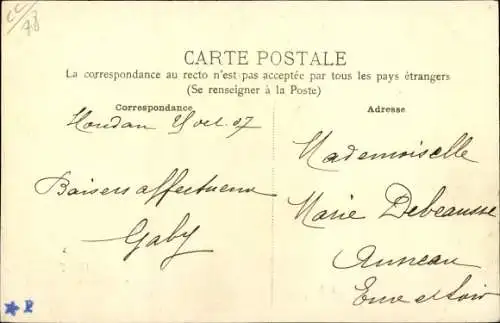 CARTE POSTALE
La correspondance au recto n'est pas acceptée par tous les pays étrangers
(Se renseigner à la Poste)
Correspondance
Houdan oct. 07
Baisers affectueux
Gaby
Adresse
Mademoiselle
Marie Debeausse
Auneau
Eure et Loir